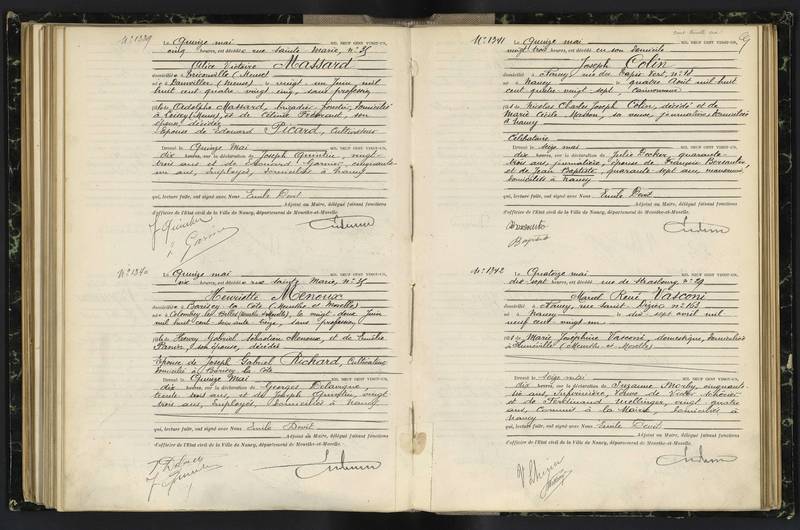 N° 1339
Le Quinze mai MIL NEUF CENT VINGT-UN,
cinq heures, est décédée rue Sainte Marie, n° 
Alice Victoire Massard
domiciliée à (Meuse)
née à Damvillers (Meuse) le vingt un Juin mil
huit cent quatre vingt cinq, sans profession
fille de Adolphe Massard, brigadier forestier, domicilié
à (Meuse), et de Céline son
épouse décédée
Epouse de Edouard Picard, Cultivateur
Dressé le Quinze Mai MIL NEUF CENT VINGT-UN,
dix heures, sur la déclaration de Joseph Quintin, vingt-
trois ans et de Edmond Garnier, cinquante-
un ans, Employés, domiciliés à Nancy
qui, lecture faite, ont signé avec Nous Emile Devit
Adjoint au Maire, délégué faisant fonctions
d'officier de l'Etat civil de la Ville de Nancy, département de Meurthe-et-Moselle.
N° 1340
Le Quinze mai MIL NEUF CENT VINGT-UN,
six heures, est décédée rue Sainte Marie, n° 
Henriette Menoux
domiciliée à Barisey la Côte (Meurthe et Moselle)
née à Colombey les Belles (Meurthe et Moselle), le vingt deux Juin
mil huit cent soixante treize, sans profession,
fille de Henry Gabriel Sébastien Menoux, et de Emélie
son épouse, décédés
Epouse de Joseph Gabriel Richard, Cultivateur
domicilié à Barisey la Côte
Dressé le Quinze Mai MIL NEUF CENT VINGT-UN,
dix heures, sur la déclaration de Georges Delavigne,
trente ans, et de Joseph Quintin, vingt
trois ans, Employés, domiciliés à Nancy
qui, lecture faite, ont signé avec Nous Emile Devit
Adjoint au Maire, délégué faisant fonctions
d'officier de l'Etat civil de la Ville de Nancy, département de Meurthe-et-Moselle.
N° 1341
Le Quinze mai MIL NEUF CENT VINGT-UN,
vingt trois heures, est décédé en son domicile
Joseph Colin
domicilié à Nancy, rue du Tapis Vert, n° 
né à Nancy le quatre Août mil huit
cent quatre vingt sept
fils de Nicolas Charles Joseph Colin, décédé et de
Marie Cécile Masson, sa veuve, journalière, domiciliée
à Nancy
Célibataire
Dressé le Seize mai MIL NEUF CENT VINGT-UN,
dix heures, sur la déclaration de Julie quarante-
trois ans, journalière, épouse de François
et de Jean Baptiste, quarante-sept ans
domiciliés à Nancy
qui, lecture faite, ont signé avec Nous Emile Devit
Adjoint au Maire, délégué faisant fonctions
d'officier de l'Etat civil de la Ville de Nancy, département de Meurthe-et-Moselle.
N° 1342
Le Quatorze mai MIL NEUF CENT VINGT-UN,
dix sept heures, est décédé rue de Strasbourg, n° 
Marcel René Vasconi
domicilié à Nancy, rue Saint Dizier n° 153
né à Nancy le dix sept avril mil
neuf cent vingt un
fils de Marie Joséphine Vasconi, domestique, domiciliée
à Lunéville (Meurthe et Moselle)
Dressé le Seize mai MIL NEUF CENT VINGT-UN,
dix heures, sur la déclaration de Suzanne cinquante-
six ans, Infirmière, Veuve de Victor
de Ferdinand vingt quatre
ans, Commis à la Mairie, domiciliés à
Nancy
qui, lecture faite, ont signé avec Nous Emile Devit
Adjoint au Maire, délégué faisant fonctions
d'officier de l'Etat civil de la Ville de Nancy, département de Meurthe-et-Moselle.